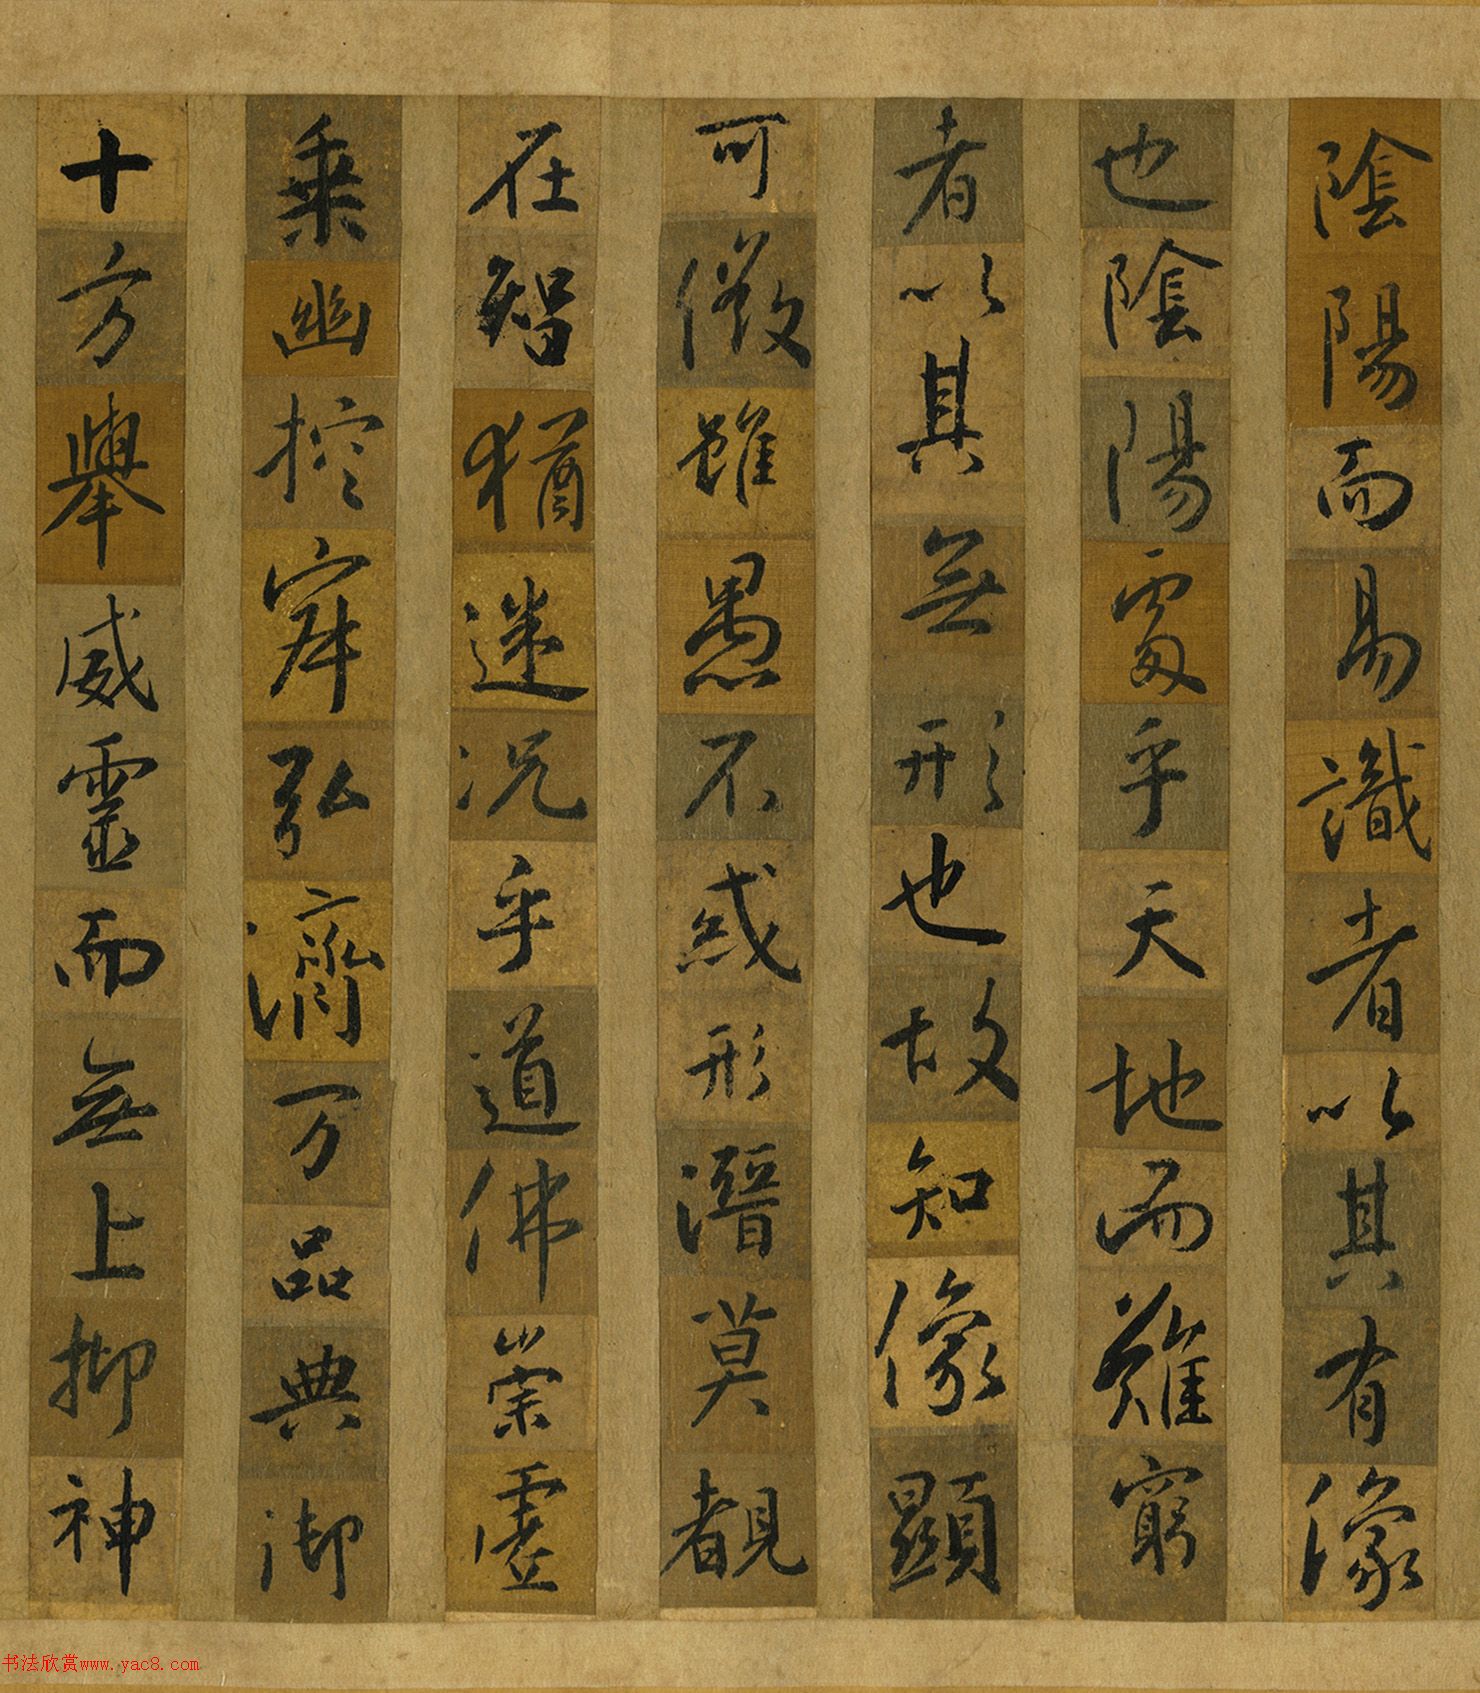 陰陽而易識者以其有像
也陰陽處乎天地而難窮
者以其無形也故知像顯
可徵雖愚不惑形潛莫覩
在智猶迷況乎道佛崇虛
乗幽控寂弘濟万品典御
十方舉威靈而無上抑神
书法欣赏www.yac8.com